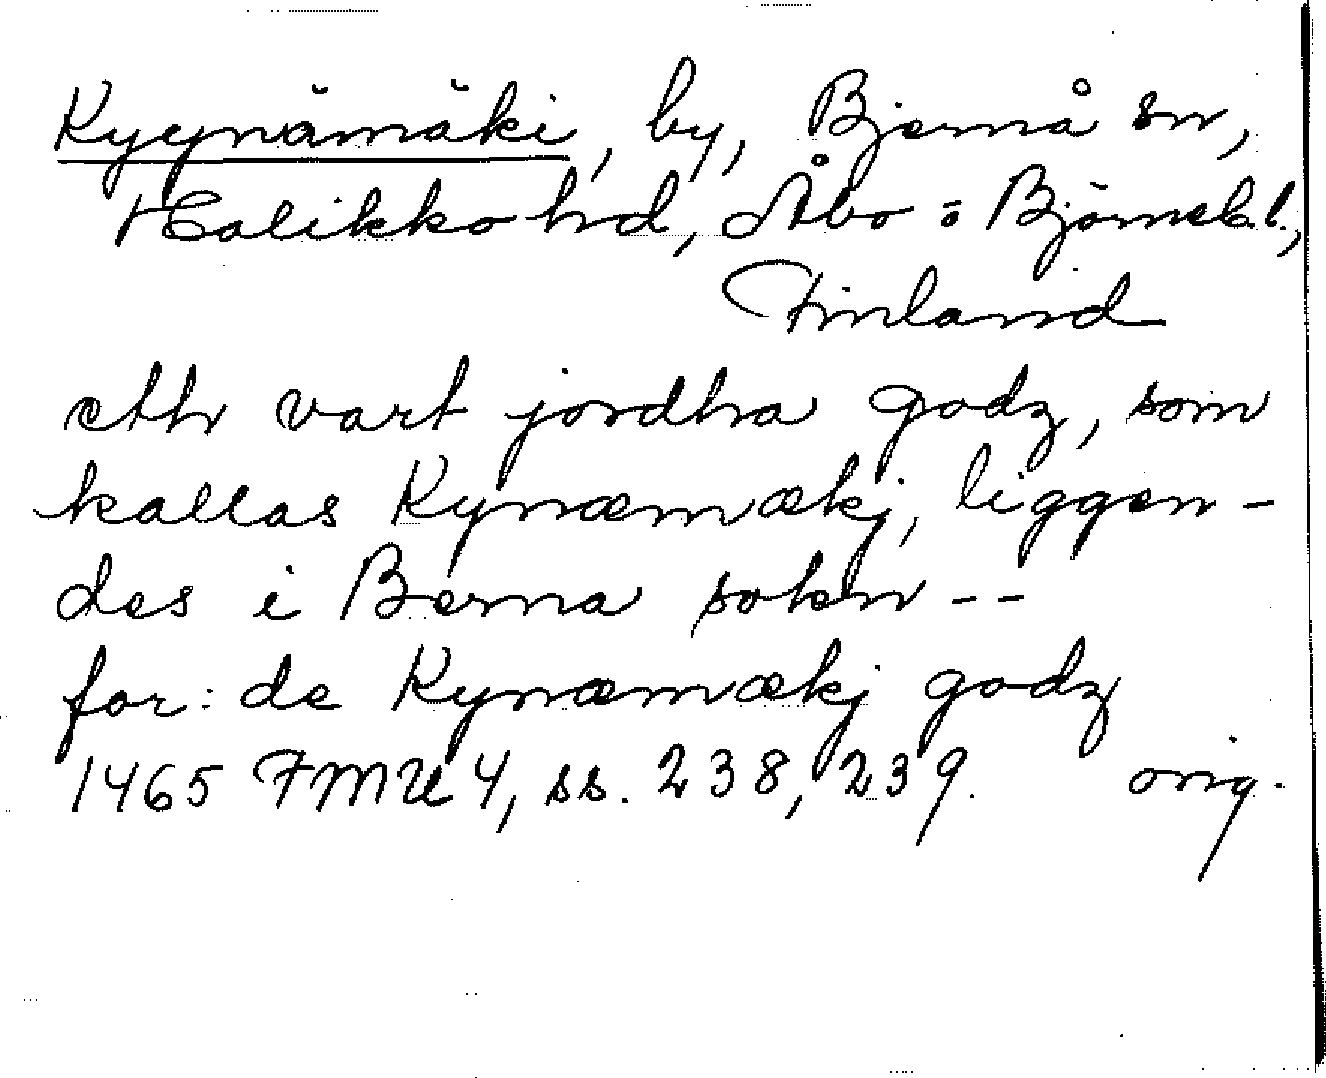 Kyynämäki, by, Bjärnå sn,
Halikko hd, Åbo o Björneb. l.,
Finland
eth vart jordha godz, som
kallas Kynæmækj, liggen-
des i Berna sokn --
for: de Kynæmækj godz
1465 FMU 4, ss. 238, 239. orig.